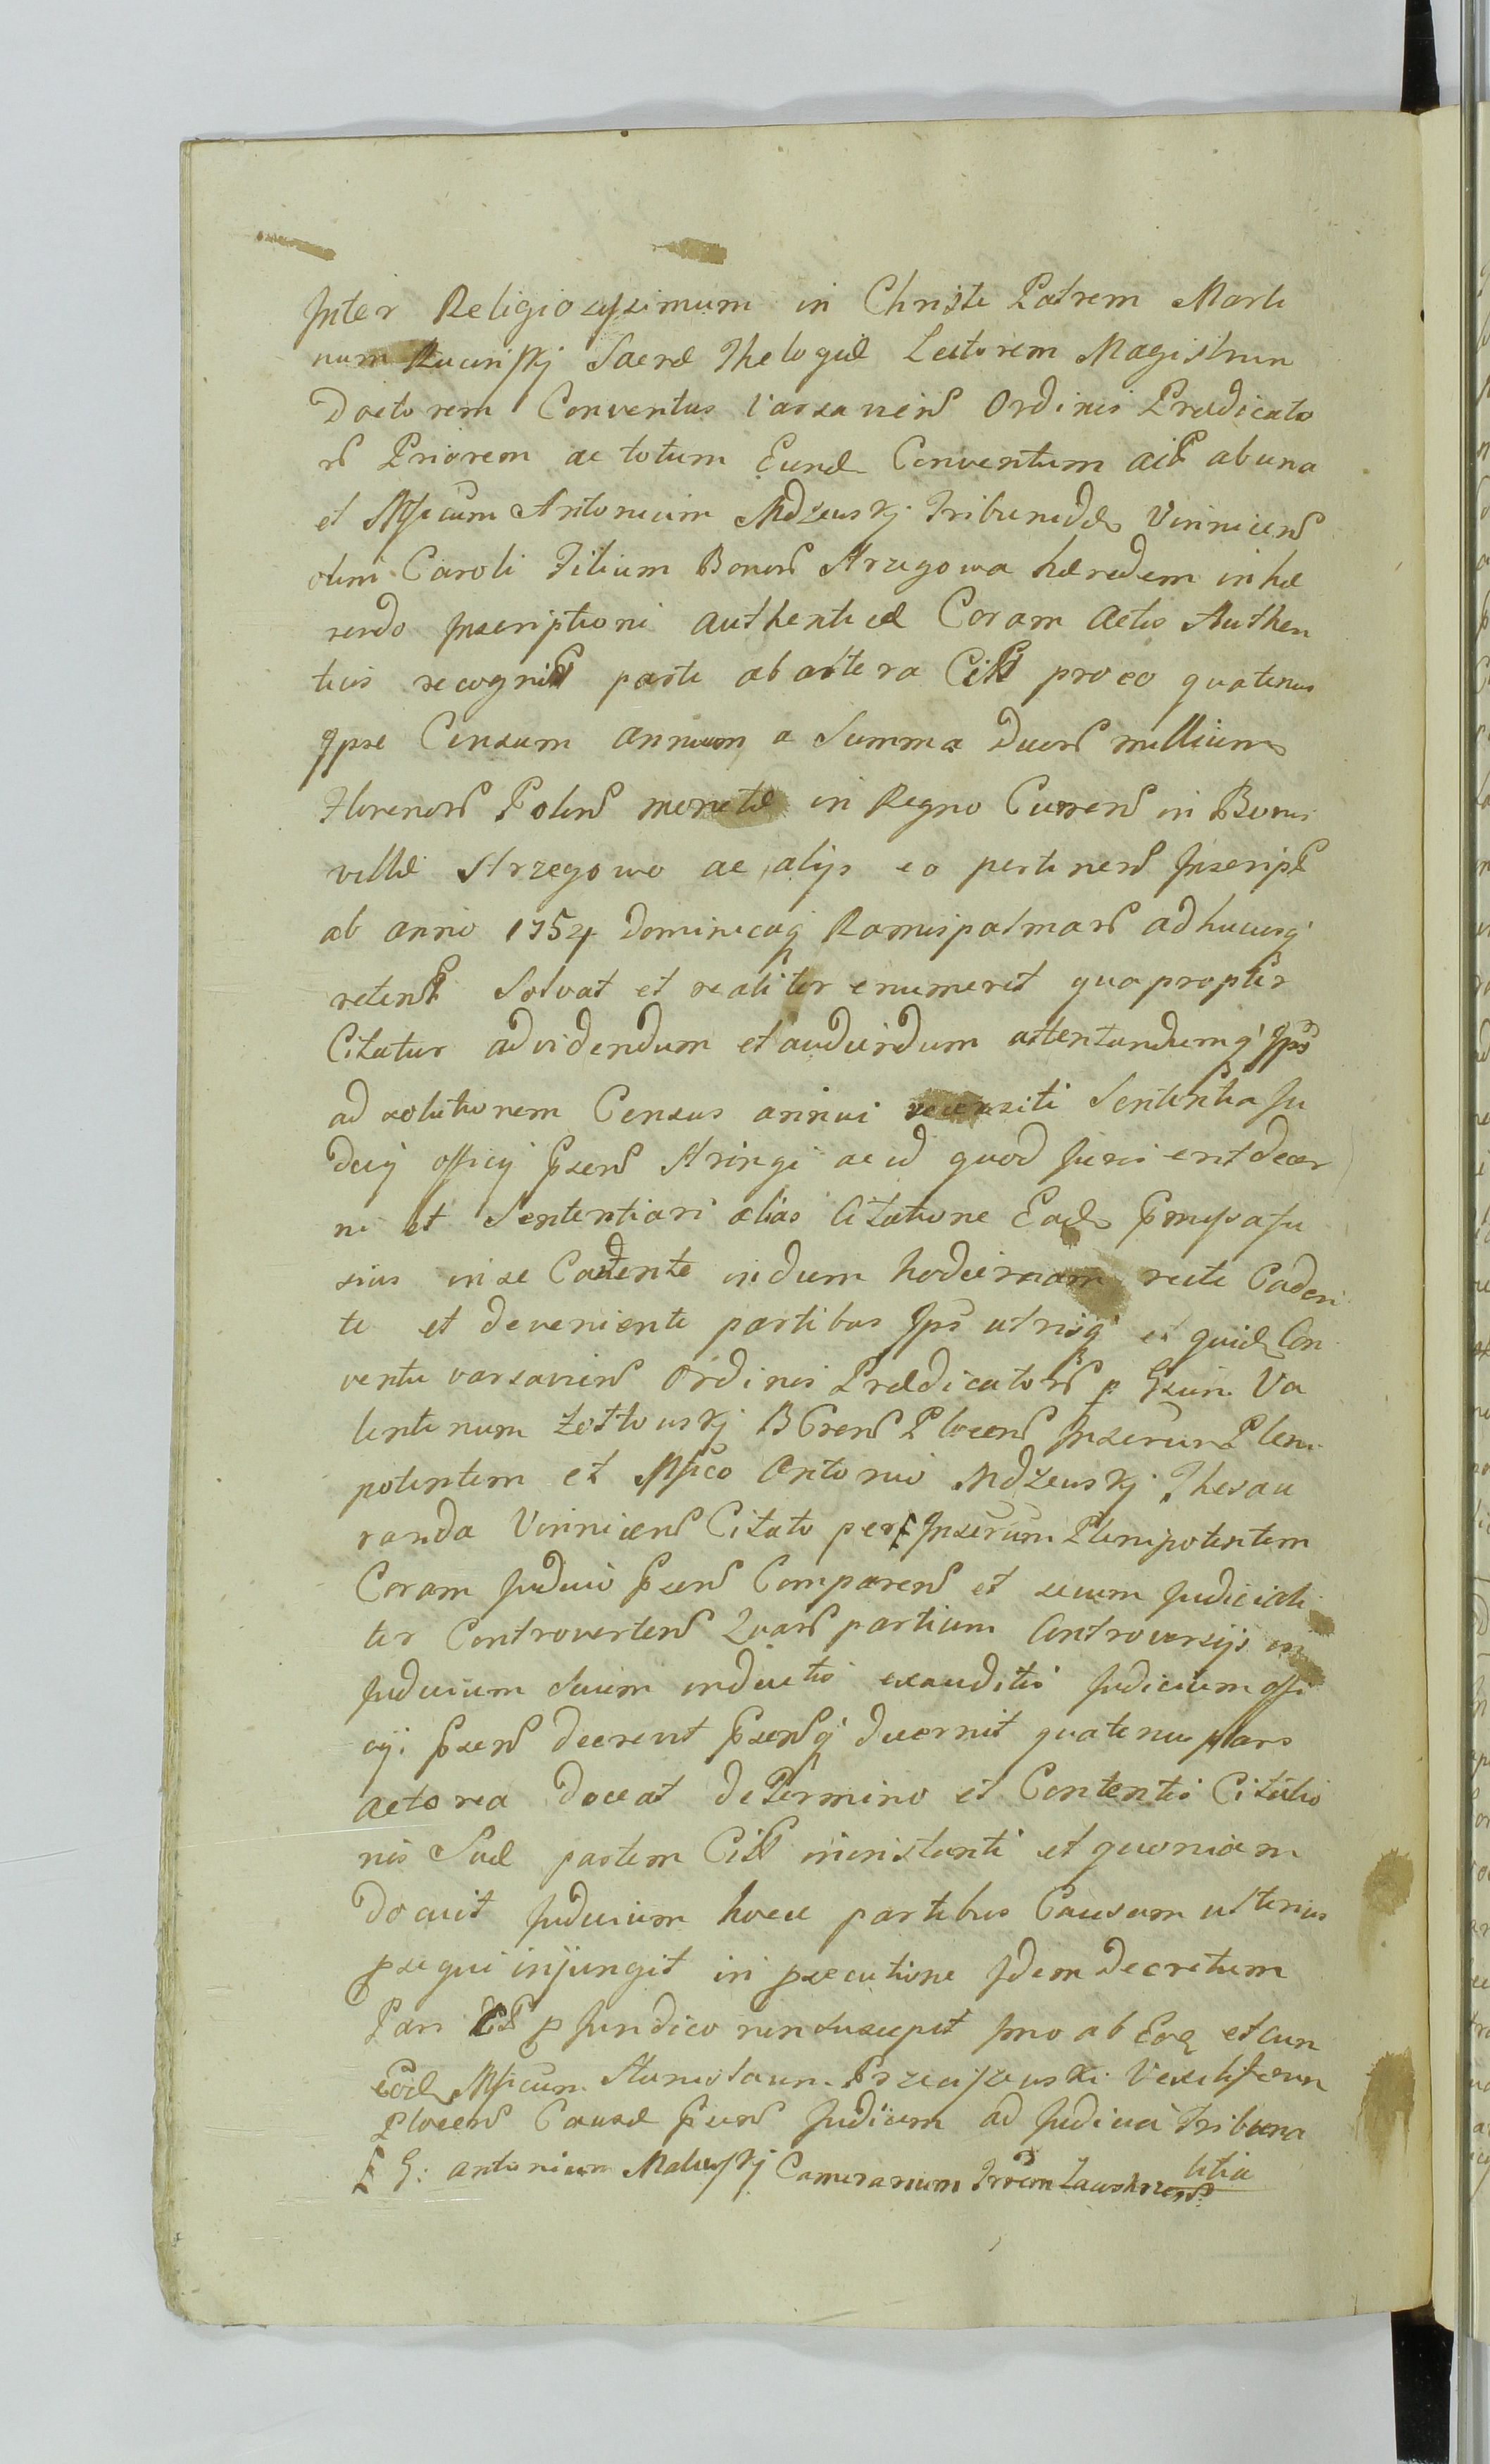 Inter Religiosissimum in Christi Patrem Marti
num Sacræ Thelogiæ Lectorem Magistrum
Doctorem Conventus Varsaviens Ordinis Prædicato
rū Priorem ac totum Eund Conventum act ab una
et Mficum Antonium Mdzewskj Tribunidæ Vinnicens
olim Caroli Filium Bonors Strzegowa hæredem inhæ
rendo Inscriptioni authenticæ Coram Actis Authen
ticis recognit parte ab altera Citt pro eo quatenus
Ipse Censum annuum a Summa Duors millium
Florenors Polons monetæ in Regno Currens in Bonis
villæ Strzegowo ac alijs eo pertinens Inscript
ab anno 1754 Dominicaq Ramispalmars adhucusq
retent Solvat et realiter enumeret quapropter
Citatur ad videndum et audiendum attentandumq Ips
ad solutionem Census annui recensiti Sententia Ju
dicij officij psens Stringi ac id quod Juris erit decer
ni et Sententiari alias Citatione Eade pmissa fu
sius in se Cadente in dium hodiernam recte Caden
te et deveniente partibus Ips utrisq et quid Con
ventu varsaviens Ordinis Prædicators p Gsum Va
lentinum Zottowskj BGrens Plocens Insrum Pleni
potentem et Mfico Antonio Mdzewskj Thesau
randa Vinnicens Citato per Insrum Plenipotentem
Coram Judicio psens Comparens et secum Judiciali
ter Controvertens Quars partium Controversijs in
Judicium Suum inductis exauditis Judicium offi
cij psens decrevit psensq decernit quatenus pars
actorea doceat de Termino et Contentis Citatio
nis Suæ partem Citt in instanti et quoniam
docuit Judicium hocce partibus Causam ulterius
psequi injungit in psecutione Idem Decretum
Pars Citt p Juridico non suscepit imo ab Eod et cum
Eod Mficum Stanislaum Vexiliferum
Plocens Causæ psens Judicum ad Judicia Tribuna
litia
G: Antonium Malewskj Camerarium Trrem Zawskrzens